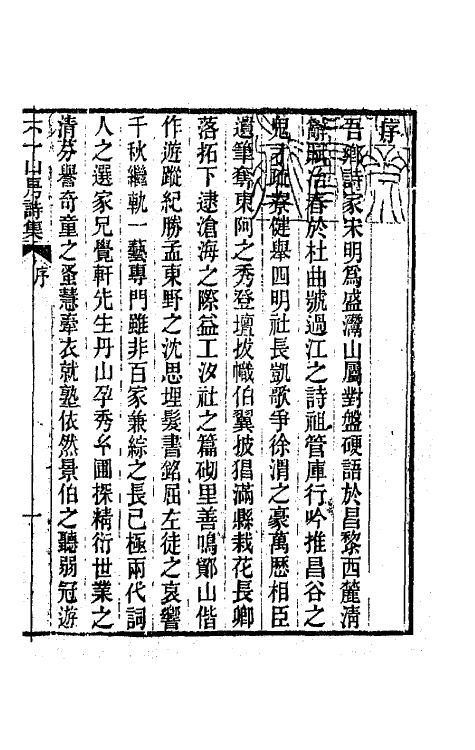 序
吾鄉詩家宋明爲盛灊山屬對盤硬語於昌黎西麓淸
辭賦冶春於杜曲號過江之詩祖管庫行吟推昌谷之
鬼才疏寮健舉四明社長凱歌爭徐渭之豪萬歷相臣
遺筆奪東阿之秀登壇拔幟伯翼披猖滿縣栽花長卿
落拓下逮滄海之際益工汐社之篇砌里善鳴鄮山偕
作遊蹤紀勝孟東野之沈思埋髮書銘屈左徒之哀響
千秋繼軌一藝專門雖非百家兼綜之長已極兩代詞
人之選家兄覺軒先生丹山孕秀幺圃探精衍世業之
淸芬譽奇童之蚤慧牽衣就塾依然景伯之聽弱冠遊
山房詩集
序
一